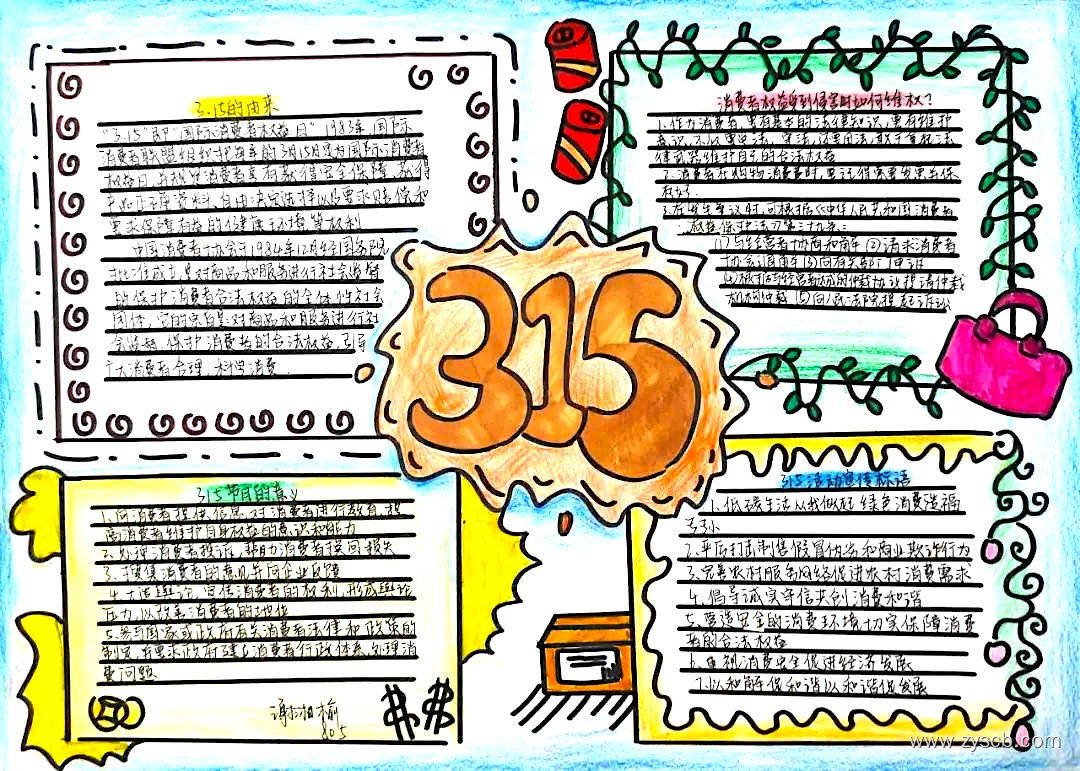 3.15的由来
"3.15"即"国际消费者权益日"1983年,国际
消费者联盟组织把每年的3月15日定为国际消费者
权益日,并
产品
要求保障有益的健康环境等权利
中国消费者协会于1984年12月经国务院
批准成立,是对商品和服务进行社会监督
的保护消费者合法权益的全体性社会
团体,它的宗旨是:对商品和服务进行社
会监督,保护消费者的合法权益,引导
广大消费者合理、科学消费。
消费者权益受到侵害时如何维权?
1.作为消费者,要有基本的法律知识,要有维护
意识,不仅要
律武器维护自己的合法权益
2.消费者在购物消费时,要
3.在发生争议时,可根据《中华人民共和国消费者
权益保护法》第三十九条:
①与经营者协商和解②请求消费者
协会调解③向有关部门申诉
④根据与经营者达成的仲裁协议提请仲裁
机构仲裁⑤向人民法院提起诉讼
315
3.15节目的意义
1.向消费者提供信息,对消费者进行教育,提
高消费者维护自身权益的意识和能力
2.处理消费者投诉,帮助消费者挽回损失
3.搜集消费者的意见并向企业反馈
4.大造舆论,宣传消费者的权利,形成舆论
压力,以改善消费者的地位
5.参与国家或政府有关消费者法律和政策的
制定,并要求政府建立消费者行政体系,处理消
费问题
谢湘榆
805
315活动宣传标语
1.低碳生活从我做起绿色消费造福
子孙
2.严厉打击制售假冒伪劣和商业欺诈行为
3.完善农村服务网络促进农村消费需求
4.倡导诚实守信共创消费和谐
5.营造安全的消费环境切实保障消费
者的合法权益
6.重视消费安全促进经济发展
7.以和解促和谐以和谐促发展
www.zyscb.com